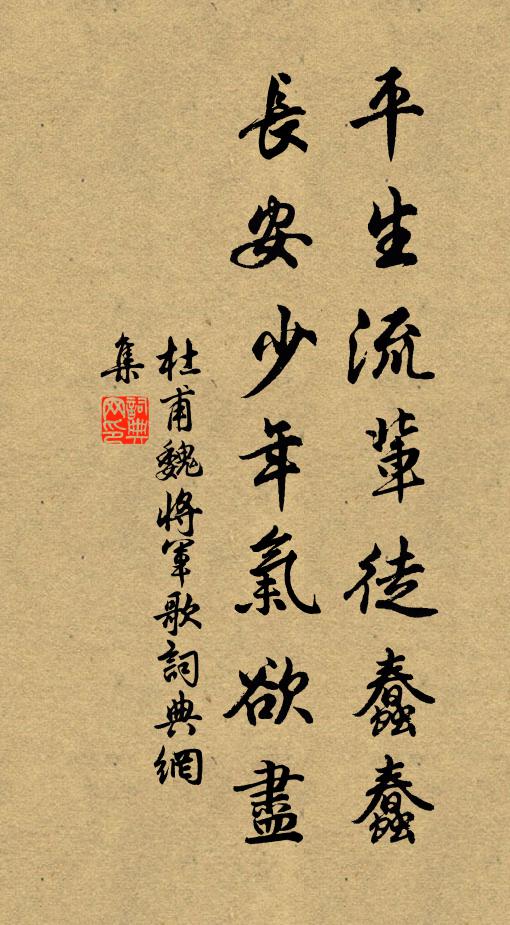 平生流輩徒蠢蠢
長安少年氣欲盡
杜甫魏將軍歌詞典網
集
詞典
网印